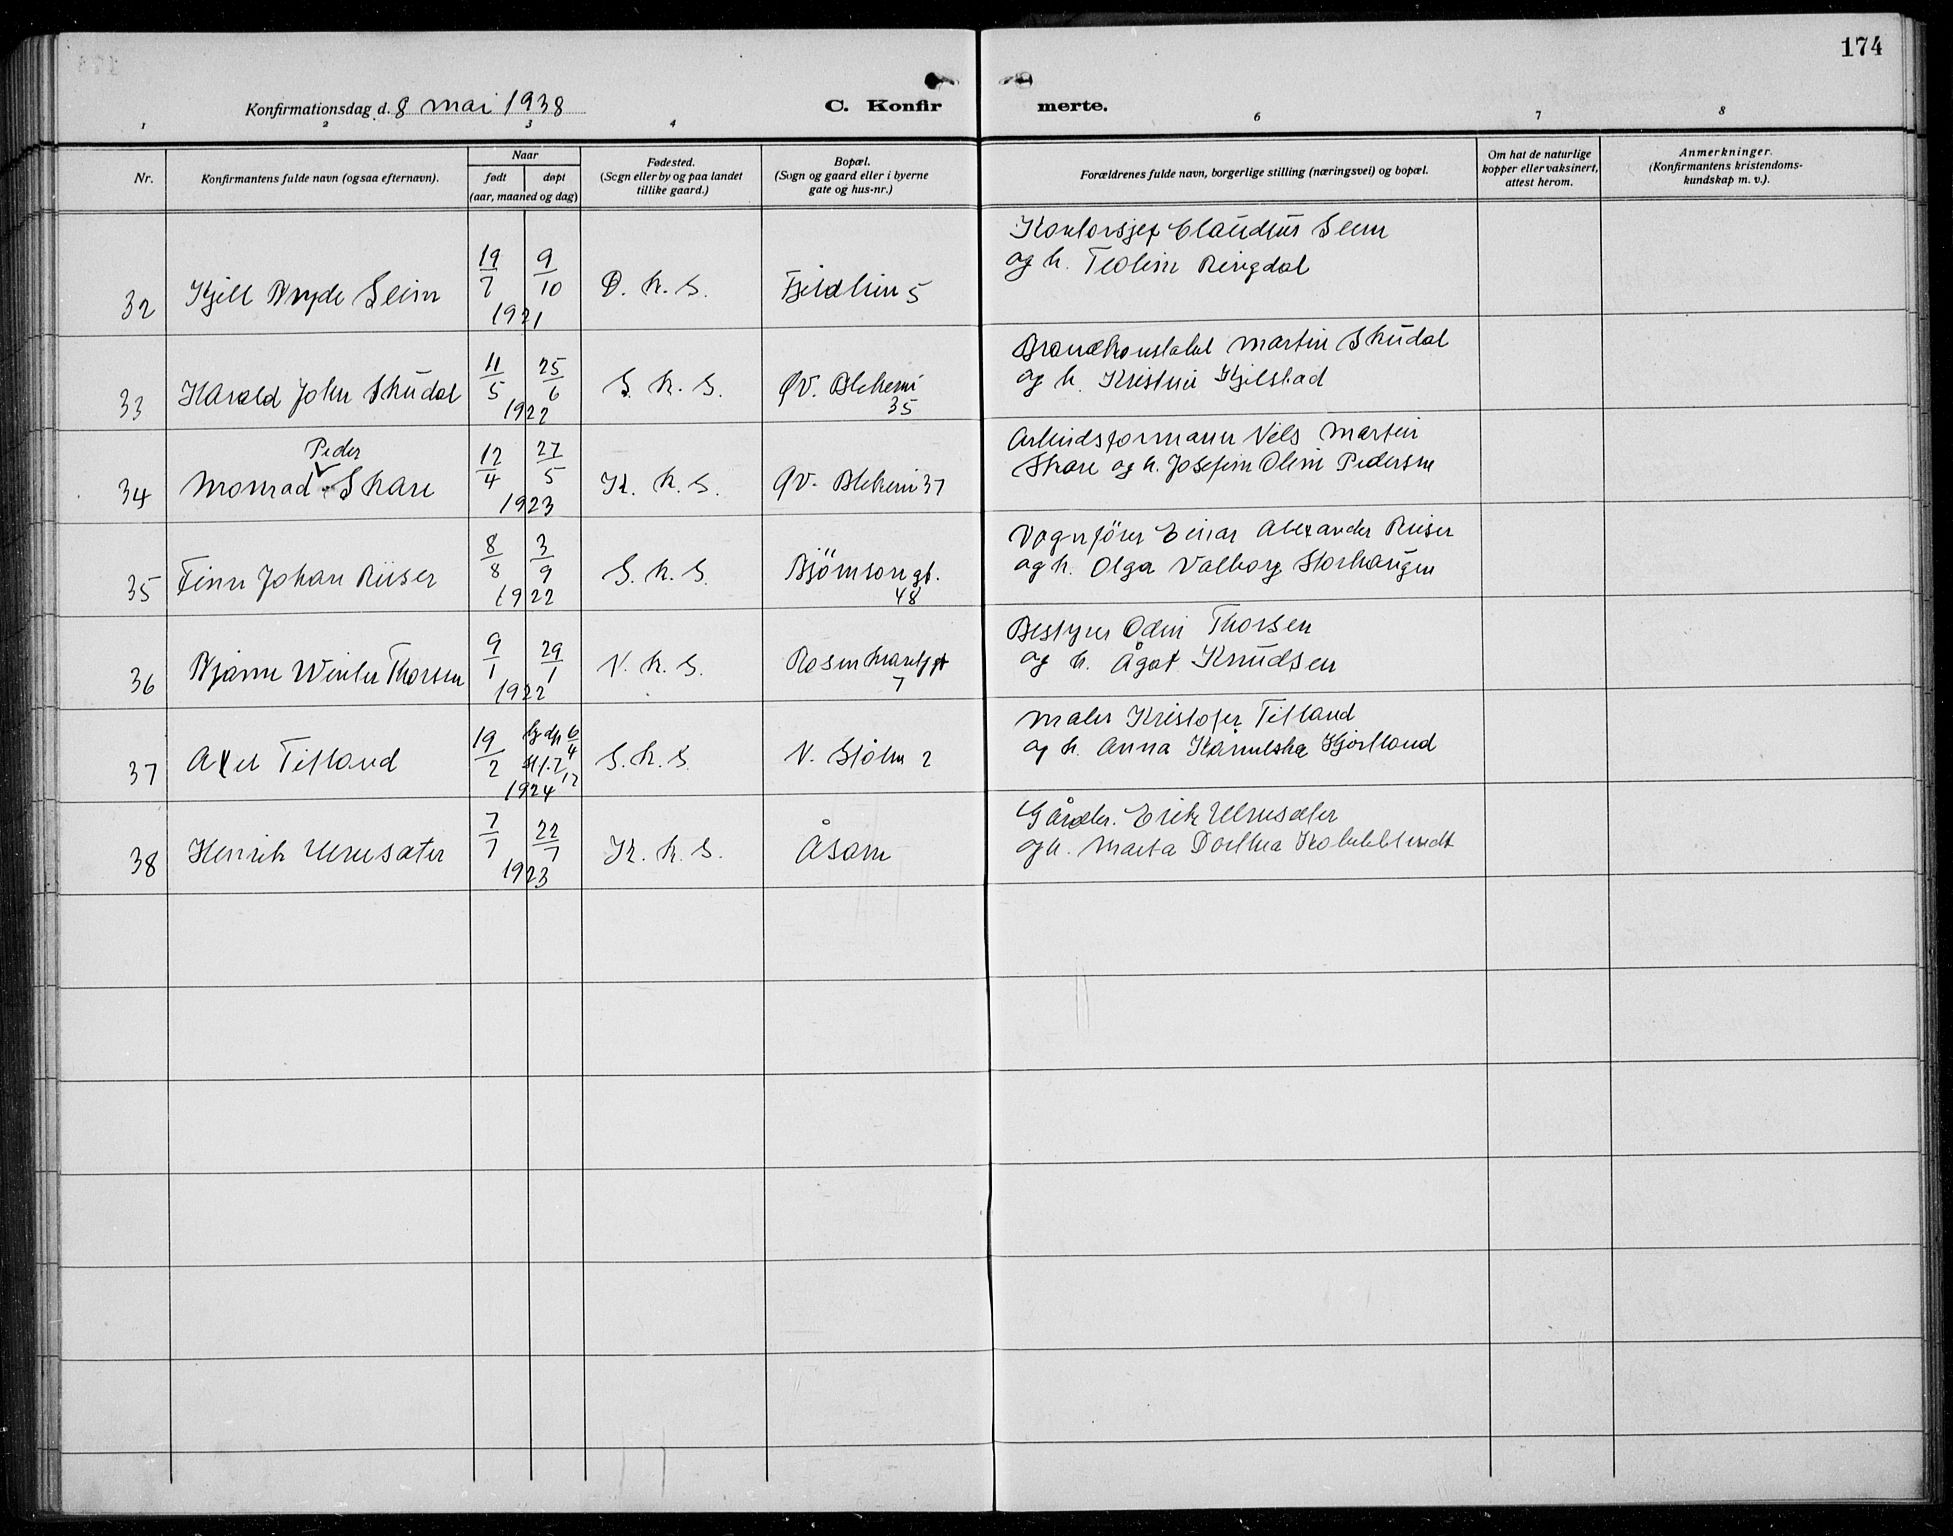 174
Konfirmationsdag d. 8 mai 1938
C. Konfir merte.
1 2 3 4 6 7 8
Nr.
Konfirmantens fulde navn (ogsaa efternavn).
Naar
født døpt
(aar, maaned og dag)
Fødested.
(Sogn eller by og paa landet
tillike gaard.)
Bopæl.
(Sogn og gaard eller i byerne
gate og hus-nr.)
Forældrenes fulde navn, borgerlige stilling (næringsvei) og bopæl.
Om hat de naturlige
kopper eller vaksinert,
attest herom.
Anmerkninger.
(Konfirmantens kristendoms-
kundskap m. v.).
32 Kjell Bryde Seim 19/7 9/10 1921 D. k. S. Fjeldlien 5
Kontorsjef Claudius Seim
og h. Teoline Ringdal
33 Harald John Skudal 11/5 25/6 1922 S. k. S. Øv. Blekevei
35
Brandkonstabel Martin Skudal
og h. Kristine Kjilstad
34 Monrad Peder Skare 12/4 27/5 1923 K. k. S. Øv. Blekevei 37
Arbeidsformann Nils Martin
Skare og h. Josefine Oline Pedersen
35 Finn Johan Riiser 8/8 3/9 1922 S. k. S. Bjørnsons gt.
48
Vognfører Einar Alexander Riiser
og h. Olga Valborg Storhaugen
36 Bjarne Winter Thorsen 9/1 29/1 1922 N. k. S. Rosenkrantzgt
7
Bestyrer Odin Thorsen
og h. Ågot Knudsen
37 Axel Titland 19/2 hj dp 6/4 st f. 7/12 1924 S. k. S. N. Stølen 2
Maler Kristofer Titland
og h. Anna Kornelska Hjortland
38 Henrik Ulvesæter 7/7 22/7 1923 K. k. S. Åsane
Gårdbr. Erik Ulvesæter
og h. Marta Dorthea